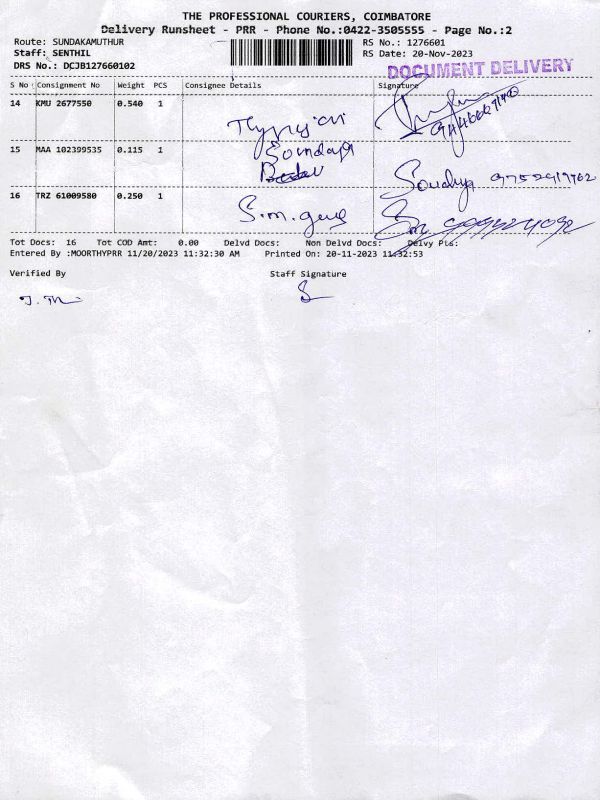 THE PROFESSIONAL COURIERS, COIMBATORE
Delivery Runsheet - PRR - Phone No.:0422-3505555 - Page No.:2
Route: SUNDAKAMUTHUR
RS No.: 1276601
Staff: SENTHIL
RS Date: 20-Nov-2023
DRS No.: DCJB127660102
DOCUMENT DELIVERY
S No Consignment No Weight PCS Consignee Details Signature
14 KMU 2677550 0.540 1
15 MAA 102399535 0.115 1
Soundarya
Soudya
16 TRZ 61009580 0.250 1
S.m.
Tot Docs: 16 Tot COD Amt: 0.00 Delvd Docs: Non Delvd Docs: Delvy Pts:
Entered By :MOORTHYPRR 11/20/2023 11:32:30 AM Printed On: 20-11-2023 11:32:53
Verified By Staff Signature